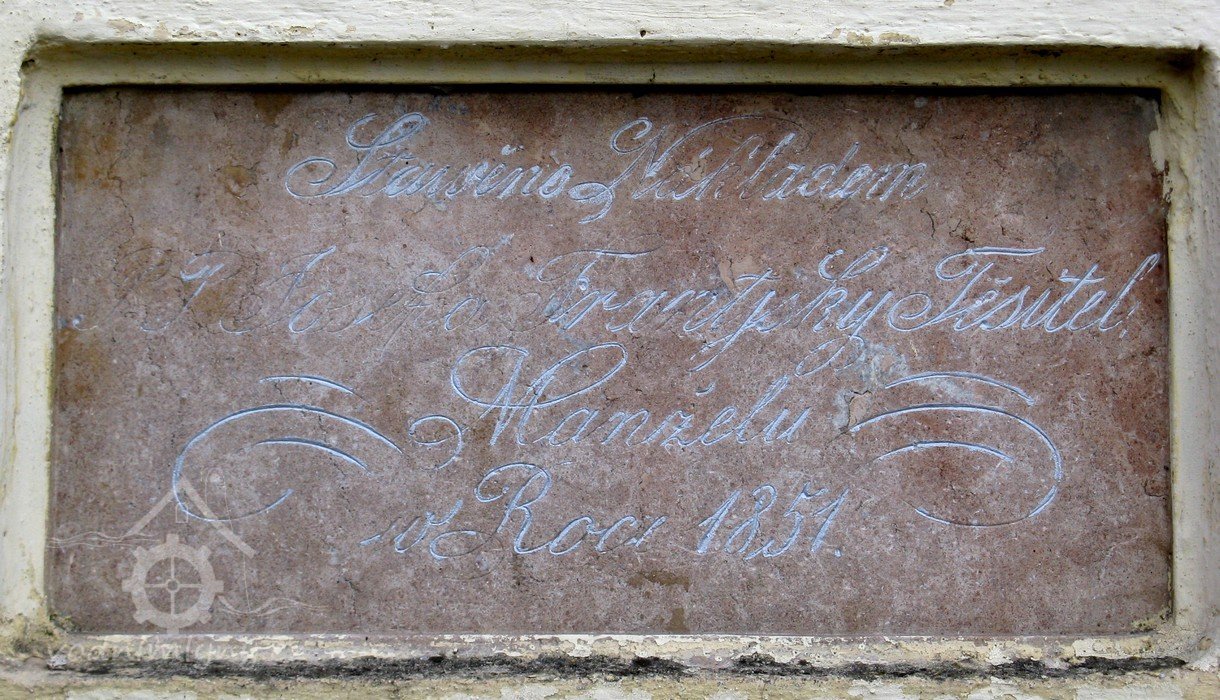 Stawěno Nákladem
Josefa Frantzisky Těsitel
Manželu
w Roce 1851.